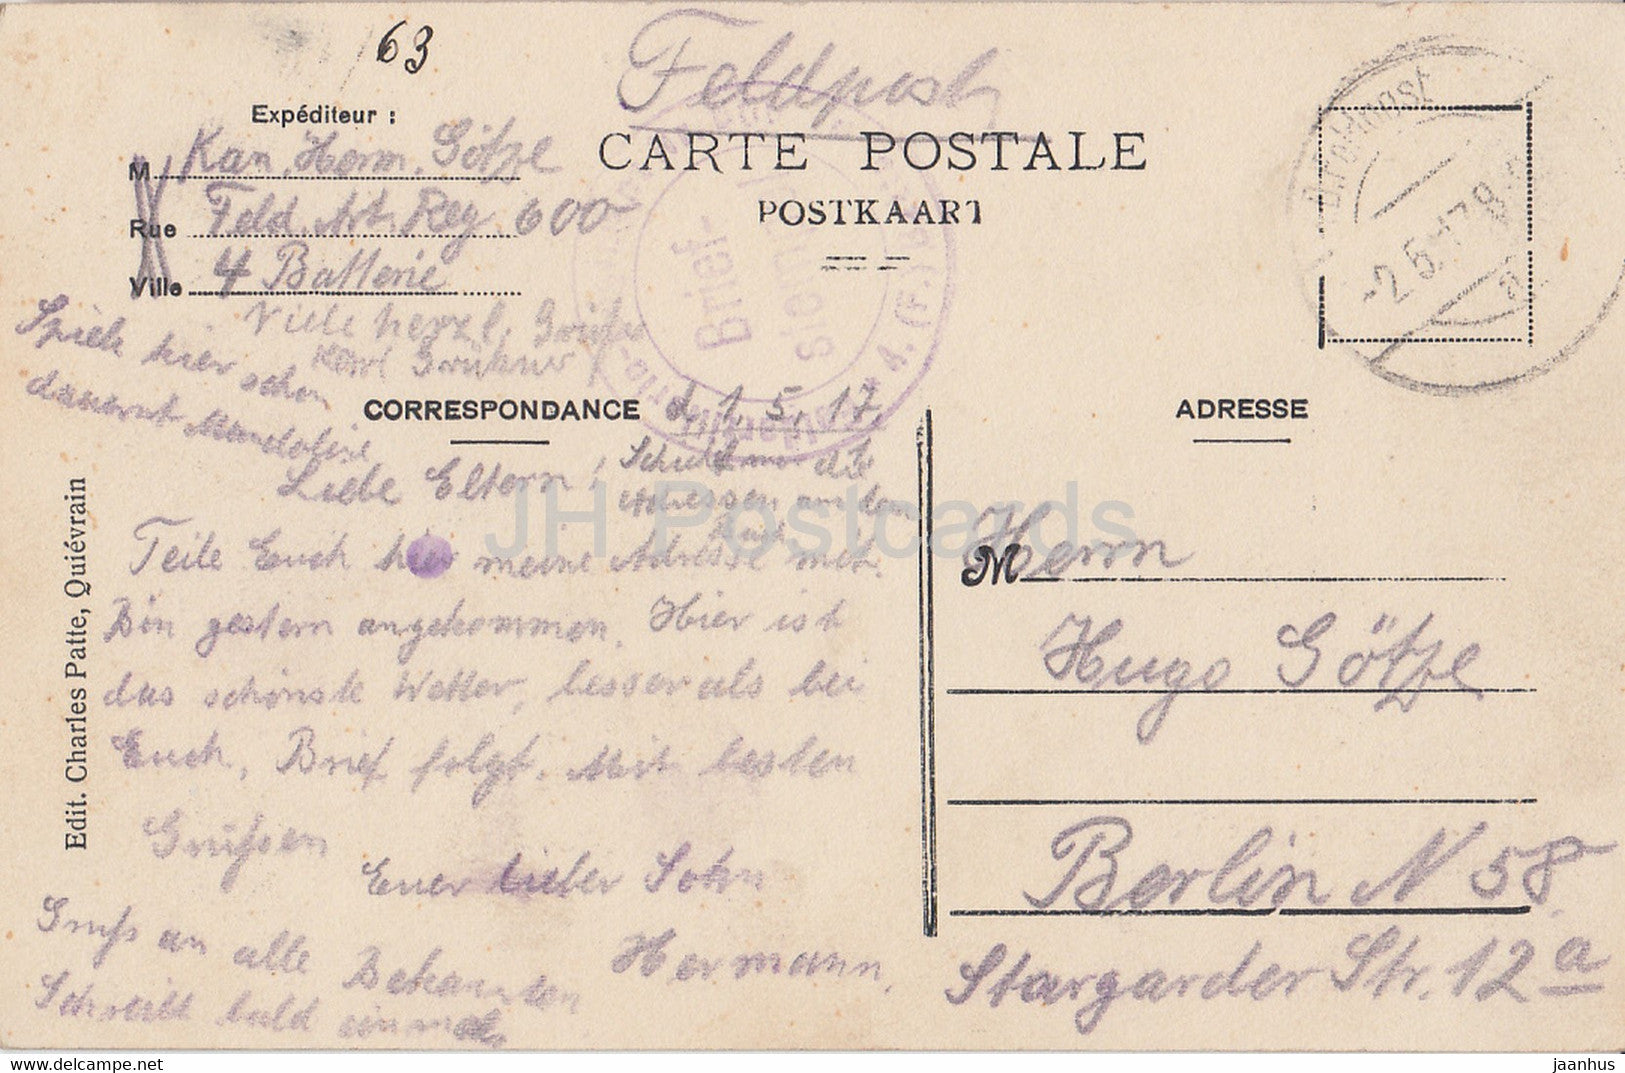 63
Feldpost
Expéditeur :
CARTE POSTALE
POSTKAART
M Kan. Herm. Götze
Rue Feld. Art. Reg 600
Ville 4 Batterie
Viele herzl. Grüße
Karl
Spiele hier schon
dauernd Mandoline
Brief-
stempel
A. (F.)
Feldpost
-2.5.17.8-9
a
CORRESPONDANCE
d. 1.5.17.
ADRESSE
Liebe Eltern!
Schickt die
Adressen an
Teile Euch hier meine Adresse mit.
Bin gestern angekommen. Hier ist
das schönste Wetter, besser als bei
Euch. Brief folgt. Mit besten
Grüßen
Euer lieber Sohn
Hermann.
Gruß an alle Bekannten
Schreibt bald einmal
Edit. Charles Patte, Quiévrain
M Herrn
Hugo Götze
Berlin N 58.
Stargarder Str. 12 a
JH Postcards
www.delcampe.net
jaanhus